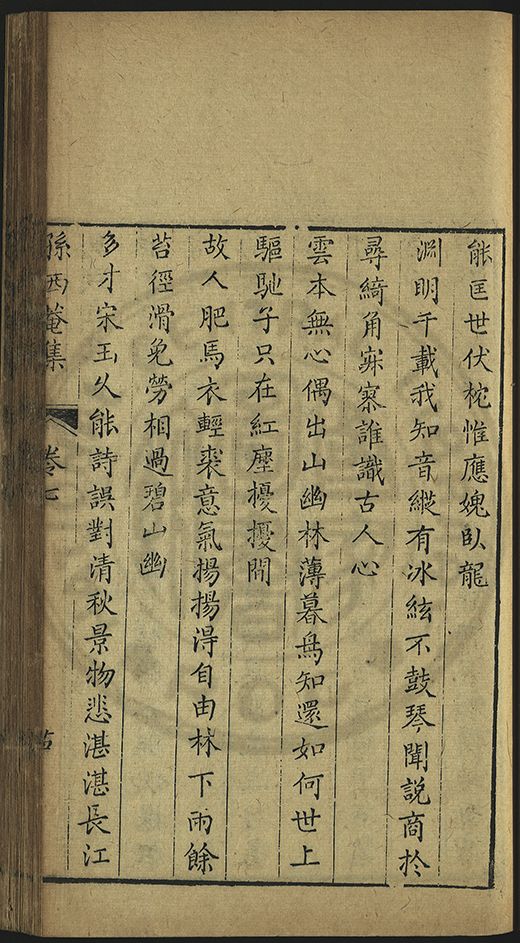 能匡世伏枕惟應媿臥龍
淵明千載我知音縱有冰絃不鼓琴聞說商於
尋綺角寂寥誰識古人心
雲本無心偶出山幽林薄暮鳥知還如何世上
驅馳子只在紅塵擾擾間
故人肥馬衣輕裘意氣揚揚得自由林下雨餘
苔徑滑免勞相過碧山幽
多才宋玉久能詩誤對清秋景物悲湛湛長江
孫西菴集 卷七